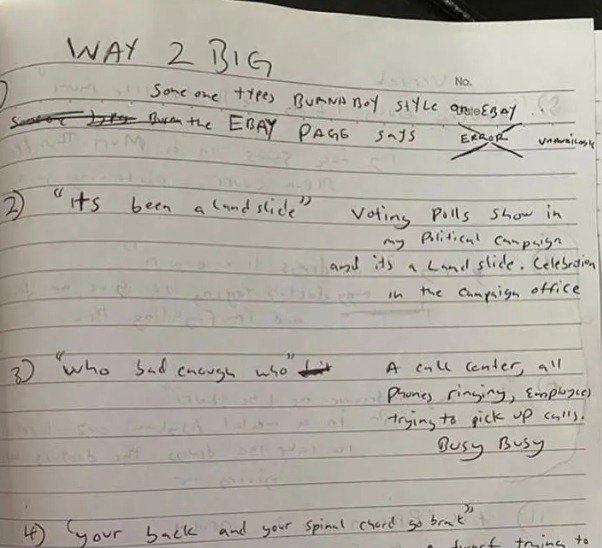 WAY 2 BIG
No.
Some one types BURNA BOY style on EBAY ...
But the EBAY PAGE says ERROR
2) "its been a landslide" Voting Polls show in
my Political Campaign
and its a Landslide. Celebration
in the Campaign office
3) "who bad enough who" A call center, all
phones ringing, Employees
trying to pick up calls.
Busy Busy
4) "your back and your spinal chord go break"
trying to